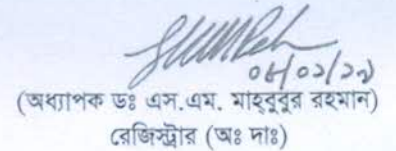 (অধ্যাপক ডঃ এস.এম. মাহবুবুর রহমান)
রেজিস্ট্রার (অঃ দাঃ)